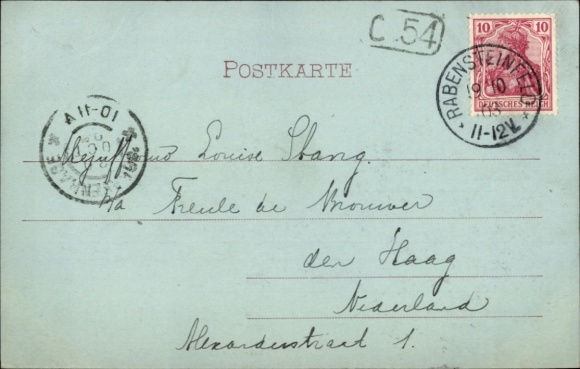 C. 54
10
DEUTSCHES REICH
RABENSTEINFELD
19 10
03
11-12V.
POSTKARTE
10-11 V
Louise Stang.
p/a Freule de Brouwer
den Haag
Nederland
Alexanderstraat 1.